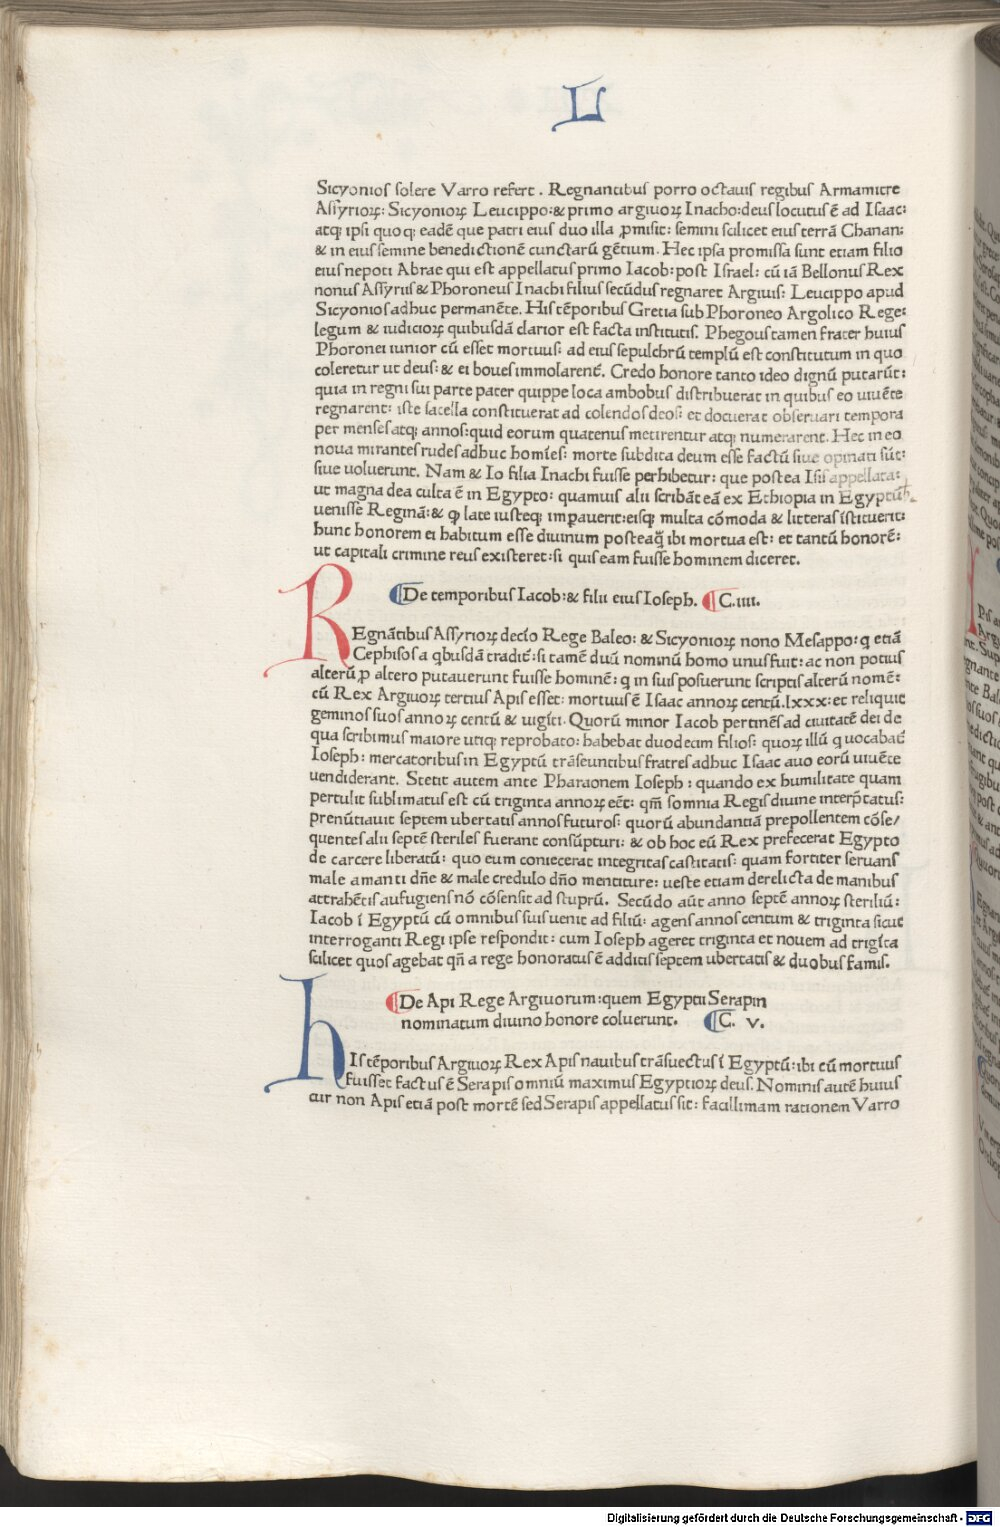 L
Sicyonios solere Varro refert. Regnantibus porro octauis regibus Armamitre
Assyrioꝝ: Sicyonioꝝ Leucippo: & primo argiuoꝝ Inacho: deus locutus ē ad Isaac:
atq; ipsi quoq; eadē que patri eius duo illa ꝓmisit: semini scilicet eius terrā Chanan:
& in eius semine benedictionē cunctarū gētium. Hec ipsa promissa sunt etiam filio
eius nepoti Abrae qui est appellatus primo Iacob: post Israel: cū iā Bellonus Rex
nonus Assyriis & Phoroneus Inachi filius secūdus regnaret Argiuis: Leucippo apud
Sicyonios adhuc permanēte. His tēporibus Gretia sub Phoroneo Argolico Rege:
legum & iudicioꝝ quibusdā clarior est facta institutis. Phegous tamen frater huius
Phoronei iunior cū esset mortuus: ad eius sepulchrū templū est constitutum in quo
coleretur ut deus: & ei boues immolarent̄. Credo honore tanto ideo dignū putarūt:
quia in regni sui parte pater quippe loca ambobus distribuerat in quibus eo uiuēte
regnarent: iste sacella constituerat ad colendos deos: et docuerat obseruari tempora
per menses atq; annos: quid eorum quatenus metirentur atq; numerarent. Hec in eo
noua mirantes rudes adhuc homīes: morte subdita deum esse factū siue opinati sūt:
siue uoluerunt. Nam & Io filia Inachi fuisse perhibetur: que postea Isis appellata:
ut magna dea culta ē in Egypto: quamuis alii scribāt eā ex Ethiopia in Egyptū
uenisse Reginā: & ꝙ late iusteq; imꝑauerit: eisq; multa cōmoda & litteras īstituerit:
hunc honorem ei habitum esse diuinum posteaq̄ ibi mortua est: et tantū honorē:
ut capitali crimine reus existeret: si quis eam fuisse hominem diceret.
¶De temporibus Iacob: & filii eius Ioseph. ¶C. iiii.
Regnātibus Assyrioꝝ decīo Rege Baleo: & Sicyonioꝝ nono Mesappo: q etiā
Cephisos a qbusdā tradit̄: si tamē duū nominū homo unus fuit: ac non potius
alterū ꝓ altero putauerunt fuisse hominē: q in suis posuerunt scriptis alterū nomē:
cū Rex Argiuoꝝ tertius Apis esset: mortuus ē Isaac annoꝝ centū. lxxx: et reliquit
geminos suos annoꝝ centū & uigīti. Quorū minor Iacob pertinēs ad ciuitatē dei de
qua scribimus maiore utiq; reprobato: habebat duodecim filios: quoꝝ illū q uocabat̄
Ioseph: mercatoribus in Egyptū trāseuntibus fratres adhuc Isaac auo eorū uiuēte
uendiderant. Stetit autem ante Pharaonem Ioseph: quando ex humilitate quam
pertulit sublimatus est cū triginta annoꝝ eēt: qm̄ somnia Regis diuine interp̄tatus:
prenūtiauit septem ubertatis annos futuros: quorū abundantiā prepollentem cōse/
quentes alii septē steriles fuerant consūpturi: & ob hoc eū Rex prefecerat Egypto
de carcere liberatū: quo eum coniecerat integritas castitatis: quam fortiter seruans
male amanti dn̄e & male credulo dn̄o mentiture: ueste etiam derelicta de manibus
attrahētis aufugiens nō cōsensit ad stuprū. Secūdo aūt anno septē annoꝝ steriliū:
Iacob ī Egyptū cū omnibus suis uenit ad filiū: agens annos centum & triginta sicut
interroganti Regi ipse respondit: cum Ioseph ageret triginta et nouem ad trigīta
scilicet quos agebat qn̄ a rege honoratus ē additis septem ubertatis & duobus famis.
¶De Api Rege Argiuorum: quem Egyptii Serapin
nominatum diuino honore coluerunt. ¶C. v.
hIs tēporibus Argiuoꝝ Rex Apis nauibus trāsuectus ī Egyptū: ibi cū mortuus
fuisset factus ē Serapis omniū maximus Egyptioꝝ deus. Nominis autē huius
cur non Apis etiā post mortē sed Serapis appellatus sit: facillimam rationem Varro
Digitalisierung gefördert durch die Deutsche Forschungsgemeinschaft - DFG